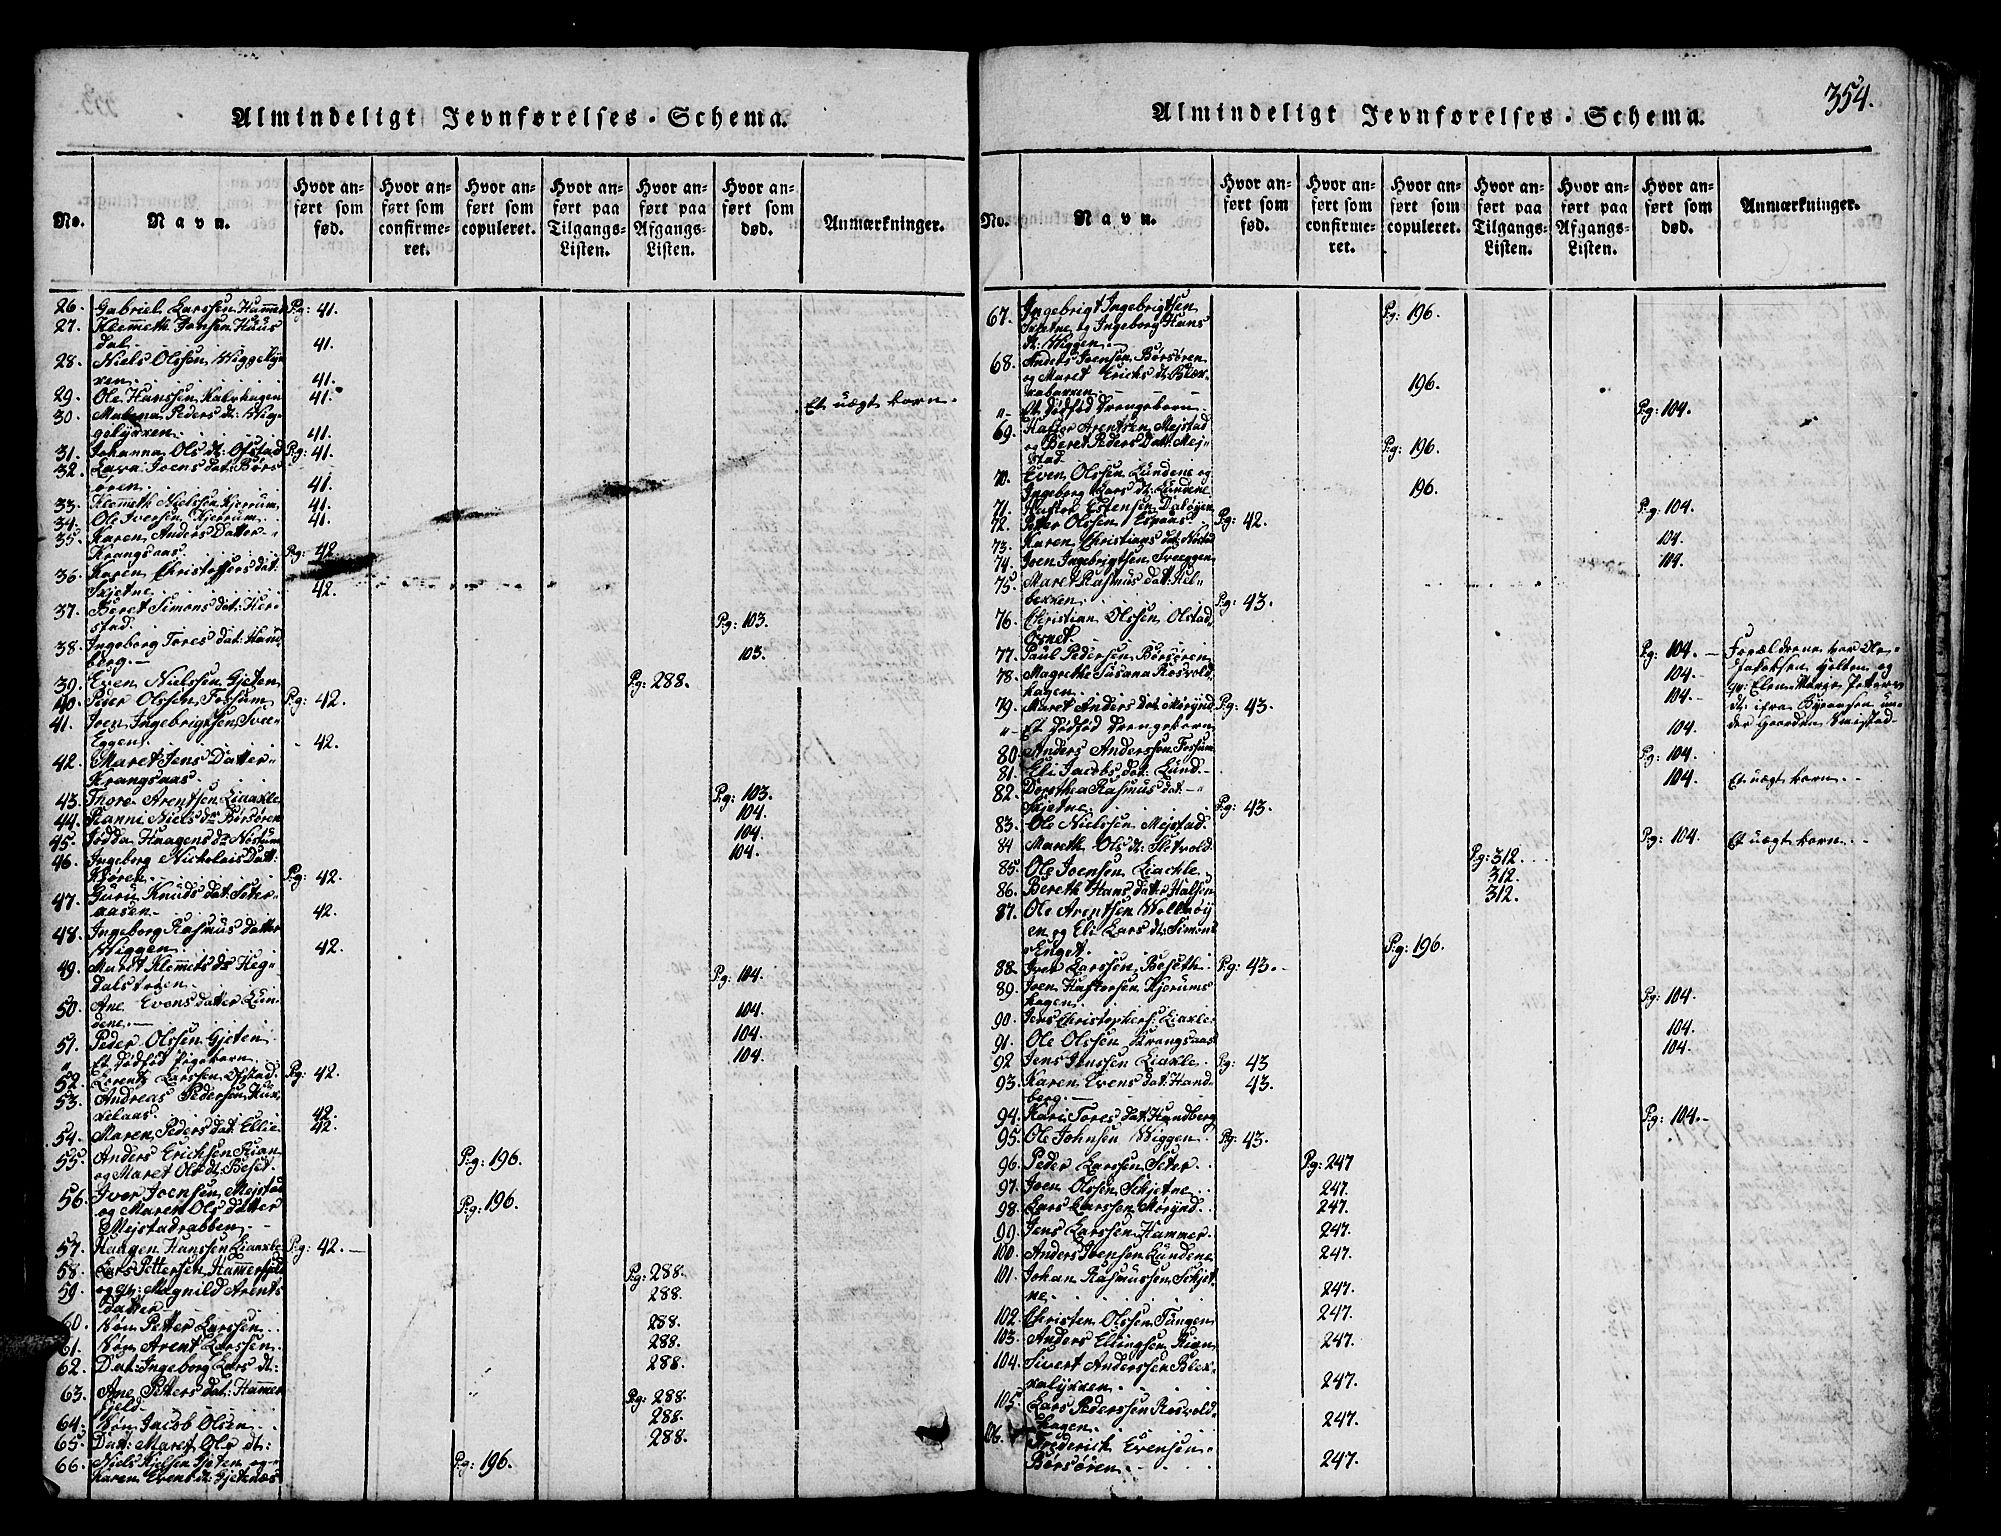 Almindeligt Jevnførelses-Schema.
No.
Navn.
Hvor anført som fød.
Hvor anført som confirmeret.
Hvor anført som copuleret.
Hvor anført paa Tilgangs-Listen.
Hvor anført paa Afgangs-Listen.
Hvor anført som død.
Anmærkninger.
26. Gabriel Larssen Hammer Pg: 41.
27. Klemeth Jonsen Huus
dal. 41.
28. Niels Olssen Wiggelyk
ken. 41.
29. Ole Hanssen Kalvhagen 41. Et uægt barn.
30. Malena Peders dt: Wig-
gelykken. 41.
31. Johanna Ols dt: Ofstad Pg: 41.
32. Lava Joens dat: Børs
øren. 41.
33. Klemeth Nielssen Kjerrum, 41.
34. Ole Iversen Kjerrum. 41.
35. Karen Anders Datter
Krangsaas. Pg: 42.
36. Karen Christoffers dat:
Skjetne. 42.
37. Beret Simons dat: Her-
stad. Pg: 103.
38. Ingeborg Tores dat: Hand
berg. 103.
39. Even Nielssen Gjeten Pg: 288.
40. Peder Olssen Fossum Pg: 42.
41. Joen Ingebrigtsen Svee-
Eggen. 42.
42. Maret Jens Datter
Krangsaas. Pg: 103.
43. Thore Arentsen Liaakle 104.
44. Ranni Niels dr Børsøren 104.
45. Jødda Haagens dr Nøstum 104.
46. Ingeborg Nicholais Datt:
Køren. Pg: 42.
47. Guru Knuds dat: Seter
aasen. 42.
48. Ingeborg Rasmus datter
Wiggen. 42.
49. Maret Klemets dr Heg-
dalstrøen. Pg: 104.
50. Ane Evens datter Lun-
dene. 104.
51. Peder Olssen Gjeten 104.
" Et dødfød Pigebarn. 104.
52. Lorentz Larssen Ofstad. Pg: 42.
53. Andreas Pedersen Kuk-
kelaas. 42.
54. Maren Peders dat: Ellie. 42.
55. Anders Ericksen Rian
og Maret Ols dt: Beset. Pg: 196.
56. Iver Joensen Mejstad
og Maren Ols datter
Mejstadrabben. Pg: 196.
57. Haagen Hanssen Liaakle Pg: 42.
58. Lars Pettersen Hamerfjeld Pg: 288.
59. og qv: Magnild Arents
datter 288.
60. Søn Petter Larssen. 288.
61. Søn Arent Larssen. 288.
62. Dat: Ingeborg Lars dt: 288.
63. Ane Petters dat: Hamer
fjeld. Pg: 288.
64. Søn Jacob Olsen 288.
65. Dat: Maret Ols dt: 288.
66. Niels Kjelsen Gjeten og
Karen Evens dt: Gjetenæs Pg: 196.
354.
Almindeligt Jevnførelses-Schema.
No.
Navn.
Hvor anført som fød.
Hvor anført som confirmeret.
Hvor anført som copuleret.
Hvor anført paa Tilgangs-Listen.
Hvor anført paa Afgangs-Listen.
Hvor anført som død.
Anmærkninger.
67. Ingebrigt Ingebrigtsen
Skjetne og Ingeborg Hans
dt: Wiggen. Pg: 196.
68. Anders Joensen Børsøren
og Maret Ericks dt: Blek-
kabakken. 196.
" Et dødfød Drengebarn. Pg: 104.
69. Haftor Arentsen Mejstad
og Beret Peders Dat: Mej-
stad Pg: 196.
70. Even Olssen Lundene og
Ingeborg Lars dt: Lundene 196.
71. Haftor Estensen Daløyen Pg: 104.
72. Peter Olssen Espaas Pg: 42.
73. Karen Christians dat: Nøstad 104.
74. Joen Ingebrigtsen Sveeggen 104.
75. Maret Rasmus dat: Hel-
bekken. Pg: 43.
76. Christian Olssen Olstad
Øsnet. Pg: 104. Forældrene har Ole
77. Paul Pedersen Børsøren 104. Jakobsen Hølden og
78. Magrethe Susana Rosvold
hagen. 104. qv: Elen Marie Peters
79. Maret Anders dat: Mørynd Pg: 43. dt: ifra Byeneset un-
" Et dødfød Drengebarn 104. der Gaarden Smistad.
80. Anders Anderssen Fossum Pg: 104.
81. Eli Jacobs dat: Lund. 104. Et uægt barn.
82. Dorothea Rasmus dat:
Skjetne. Pg: 43.
83. Ole Nielssen Mejstad. Pg: 104. Et uægt barn.
84. Mareth Ols dt: Sletvold. Pg: 312.
85. Ole Joensen Liaakle 312.
86. Bereth Hans datter Halsen 312.
87. Ole Arentsen Wollnøy
en og Eli Lars dt: Simons
Enget. Pg: 196.
88. Iver Larssen Beseth. Pg: 43.
89. Joen Haftorsen Kjerums
hagen. Pg: 104.
90. Jens Christophers: Liaakle 104.
91. Ole Olssen Krangsaas 104.
92. Jens Jenssen Liaakle. Pg: 43
93. Karen Evens dat: Hand-
berg. 43.
94. Kari Tores dat: Handberg Pg: 104.
95. Ole Johnsen Wiggen. Pg: 43.
96. Peder Larssen Seter. Pg: 247
97. Joen Olssen Schjetne. 247.
98. Lars Larssen Mørynd. 247.
99. Jens Larssen Hammer. 247.
100. Anders Ivensen Lundene 247.
101. Johan Rasmussen Schjet
ne. 247.
102. Christen Olssen Tangen 247.
103. Anders Ellingsen Rian 247.
104. Sivert Anderssen Blek-
kalykken. 247.
105. Lars Pederssen Rosvold-
hagen. 247.
106. Frederick Evensen
Børsøren. 247.